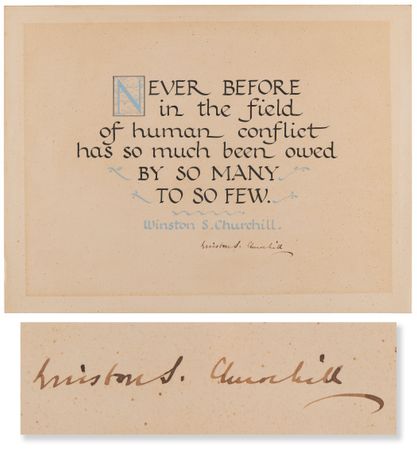 NEVER BEFORE
in the field
of human conflict
has so much been owed
BY SO MANY
TO SO FEW.
Winston S. Churchill.
Winston S. Churchill
Winston S. Churchill